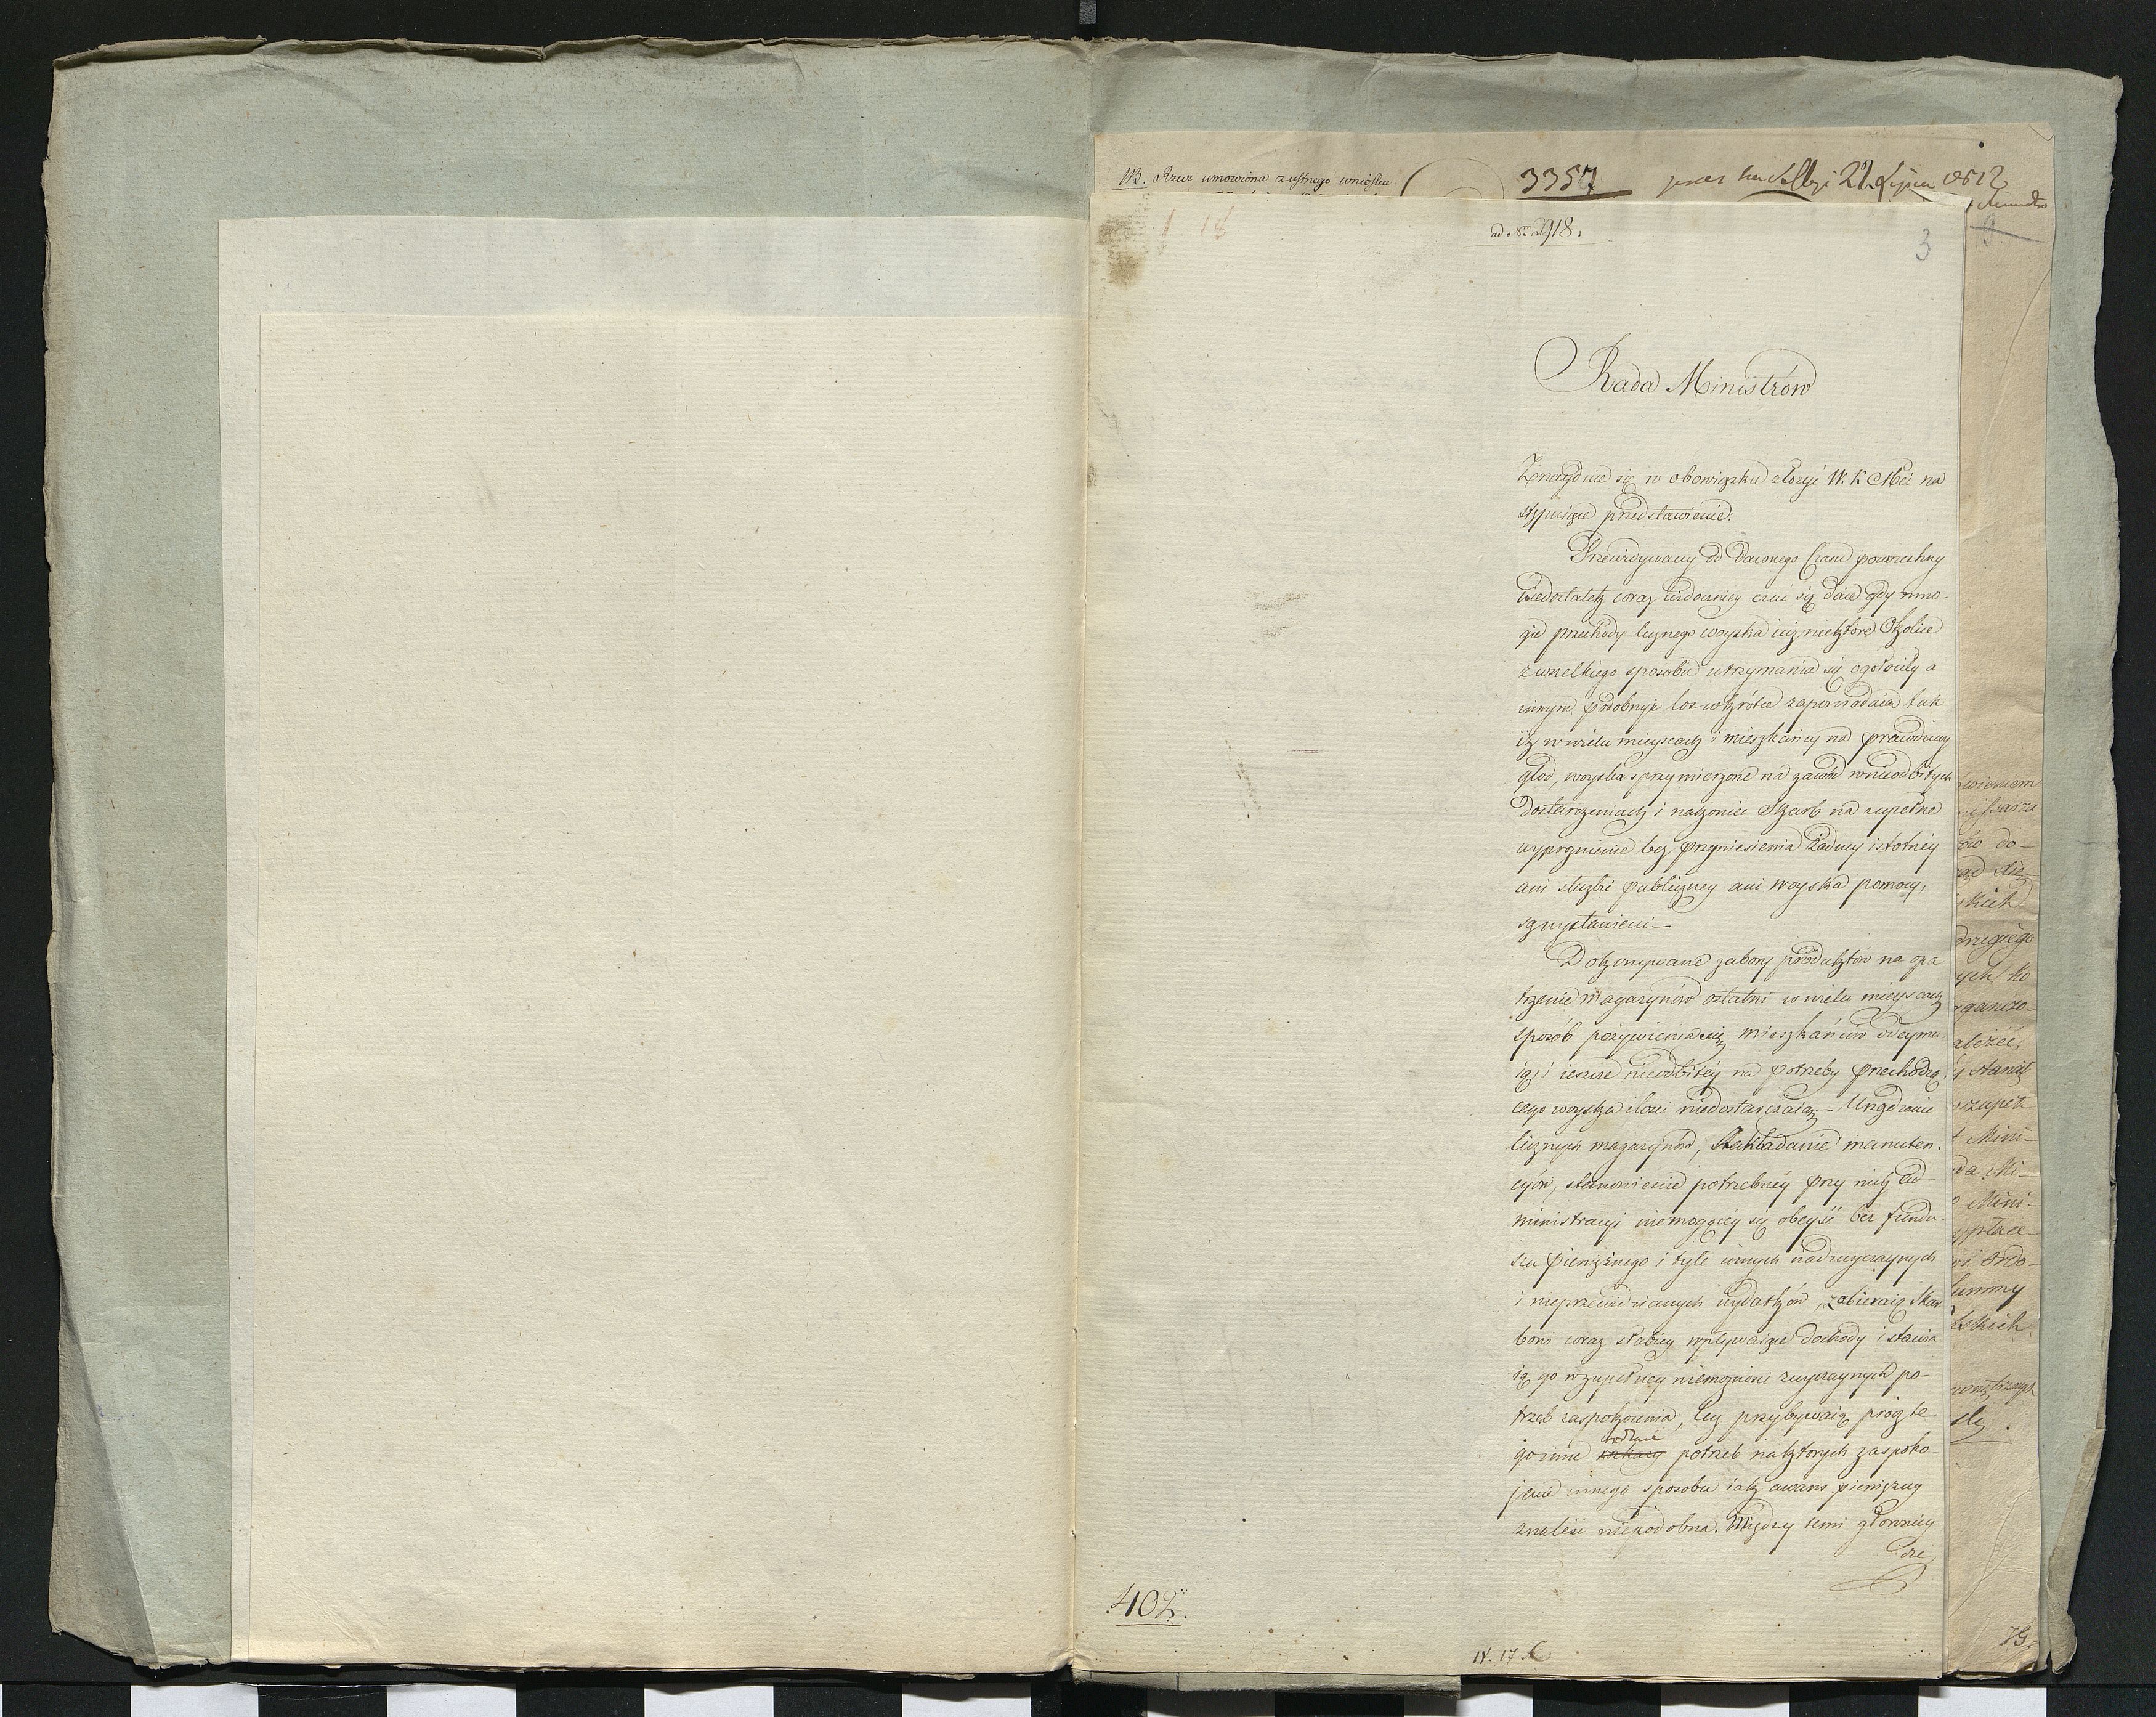 NB. Rzecz umowiona z ustnego wniosku
3357
22. Lipca 1812
ad Nrum 2918.
3
18
9
Rada Ministrów
Znayduie się w obowiązku złożyć W. K Mci na
stępuiące przedstawienie:
Przewidywany od dawnego Czasu powszechny
niedostatek coraz widoczniey czuć się daie gdy mno-
gie przechody licznego woyska iuż niektóre Okolice
z wszelkiego sposobu utrzymania się ogołociły a
innym podobnyż los wkrótce zapowiadaią tak
iż w wielu mieyscach i mieszkańcy na prawdziwy
głód, woyska sprzymierzone na zawód w nieodbitych
dostarczeniach i nakoniec Skarb na zupełne
wyprożnienie bez przyniesienia żadney istotney
ani służbie publiczney ani woysku pomocy,
są wystawieni—
Dokonywane zabory produktów na opa
trzenie magazynów ostatni w wielu mieyscach
sposób pożywienia się mieszkańców odeymu-
iąc ieszcze nieodbitey na potrzeby przechodzą
cego woyska ilości niedostarczaią;— Urządzenie
licznych magazynów, Zakładanie manuten-
cyów, stanowienie potrzebney przy nich Ad-
ministracyi niemogącey się obeyść bez fundu-
szu pieniężnego i tyle innych nadzwyczaynych
i nieprzewidzianych wydatków, zabieraią Skar
bowi coraz słabiey wpływaiące dochody i stawia
ią go w zupełney niemożności zwyczaynych po-
trzeb zaspokoienia, lecz przybywaią prócz te
go inne rodzaie potrzeb na których zaspoko-
jenie innego sposobu iak awans pieniężny
znaleść niepodobna. Między temi głowniey
402.
IV. 17
wieniem
missarza
ów do-
skich
drugiego
ych ko
rganizo-
ależeć
stanąć
zupeł
Mini-
da Mi-
Mini-
ypłace-
ordo-
summy
skich